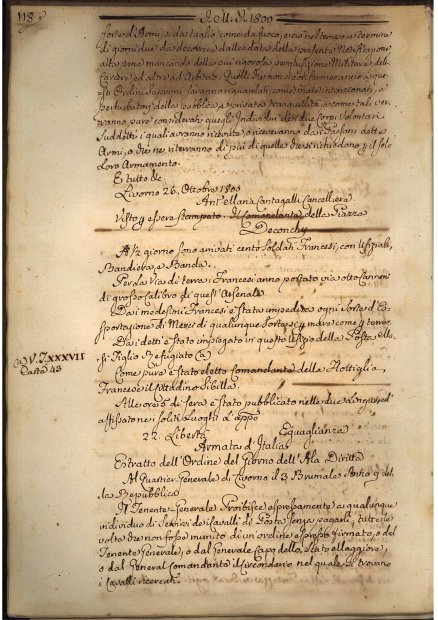 118
1800
sorte di Armi, sì da taglio, come da fuoco, e ciò nel tempo, e termine
di giorni due da decorrere dalla data della presente Notificazione
alla pena mancando della più rigorosa perquisizione Militare, della
Carcere, ed altra ad Arbitrio. Quelli che non si conformeranno a que-
sti Ordini Supremi saranno riguardati come male intenzionati, e
perturbatori della pubblica, e privata tranquillità, e come tali ver-
ranno pure considerati quegli Individui dei due Corpi Volontari
Sudditi, i quali avranno ricevute, o riceveranno dai Paesani delle
Armi, o che ne riterranno di più di quelle che si richiedono per il solo
Loro Armamento.
E tutto &c.
Livorno 26. Ottobre 1800
Cantagalli Cancelliere
Visto per essere stampato. Il Comandante della Piazza
Deconchy
A ½ giorno sono arrivati cento Soldati Francesi, con Ufiziali,
Bandiera, e Banda.
Per la Via di terra i Francesi anno portato via otto Cannoni
di grosso Calibro di quest' Arsenale.
Dai medesimi Francesi è stata impedita ogni sorte d'E-
sportazione di Merci di qualunque sorte, sì per mare come per terra
Dai detti è stato impiegato in questo Ufizio della Posta
Refugiato
V. T. XXXVII
Carta 43
Come pure è stato eletto Comandante della Flottiglia
Francese il Cittadino Sibilla.
Alle ore 5 di sera è stato pubblicato nelle due Lingue, ed
affissato nei soliti Luoghi
22. Libertà Eguaglianza
Armata d'Italia
Estratto dell'Ordine del Giorno dell'Ala Diritta
Al Quartier Generale di Livorno il 3 Brumale Anno 9 del-
la Repubblica
Il Tenente Generale Proibisce espressamente a qualunque
individuo di servirsi dei Cavalli di Posta senza pagarli, tutte le
volte che non fosse munito di un ordine espresso firmato, o dal
Tenente Generale, o dal Generale Capo dello Stato Maggiore,
o dal General Comandante il Circondario nel quale si trovano
i Cavalli ricercati.